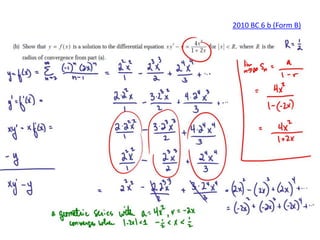 2010 BC 6 b (Form B)
(b) Show that y = f(x) is a solution to the differential equation xy' − y = 4x²/(1 + 2x) for |x| < R, where R is the
radius of convergence from part (a).
R = 1/2
y = f(x) = ∞ Σ n=2 (-1)ⁿ(2x)ⁿ/(n-1) = 2²x²/1 - 2³x³/2 + 2⁴x⁴/3 + ...
y' = f'(x) = 2·2²x/1 - 3·2³x²/2 + 4·2⁴x³/3 + ...
xy' = x f'(x) = 2·2²x²/1 - 3·2³x³/2 + 4·2⁴x⁴/3
- y 2²x²/1 2³x³/2 2⁴x⁴/3
xy' - y = 2²x² - 2·2³x³/2 + 3·2⁴x⁴/3 = (2x)² - (2x)³ + (2x)⁴ + ...
= (-2x)² + (-2x)³ + (-2x)⁴ + ...
a geometric series with a = 4x², r = -2x
converges when |-2x| < 1 -1/2 < x < 1/2
lim n→∞ Sₙ = a/(1 - r)
= 4x²/(1-(-2x))
= 4x²/(1+2x)